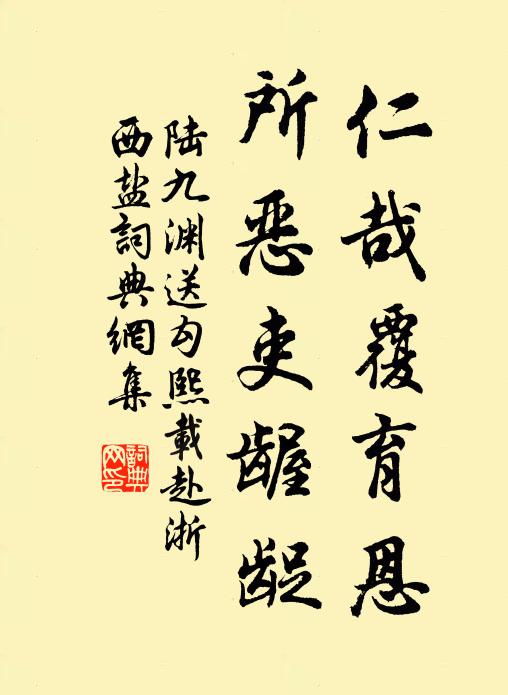 仁哉覆育恩
所恶吏龌龊
陆九渊送勾熙載赴浙
西盐詞典網集
詞典网印